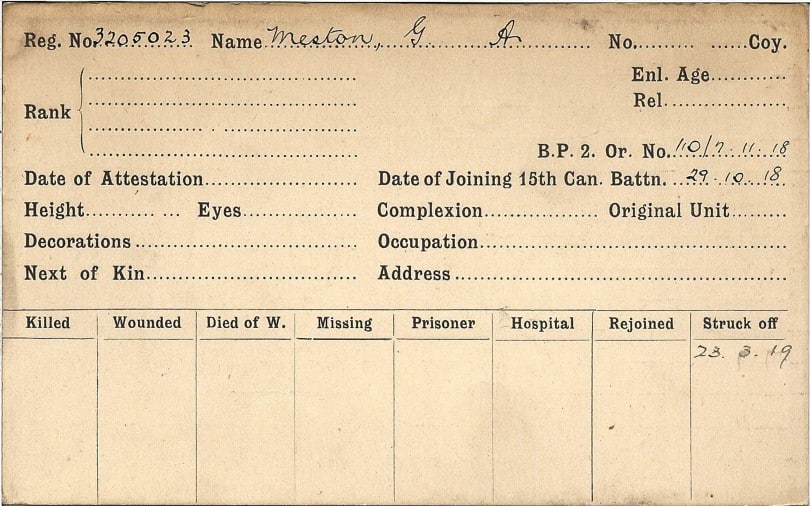 Reg. No. 3205023 Name Meston, G A No. Coy.
Enl. Age
Rel.
Rank
B.P. 2. Or. No. 110/7.11.18
Date of Attestation Date of Joining 15th Can. Battn. 29.10.18
Height Eyes Complexion Original Unit
Decorations Occupation
Next of Kin Address
Killed Wounded Died of W. Missing Prisoner Hospital Rejoined Struck off
23.3.19